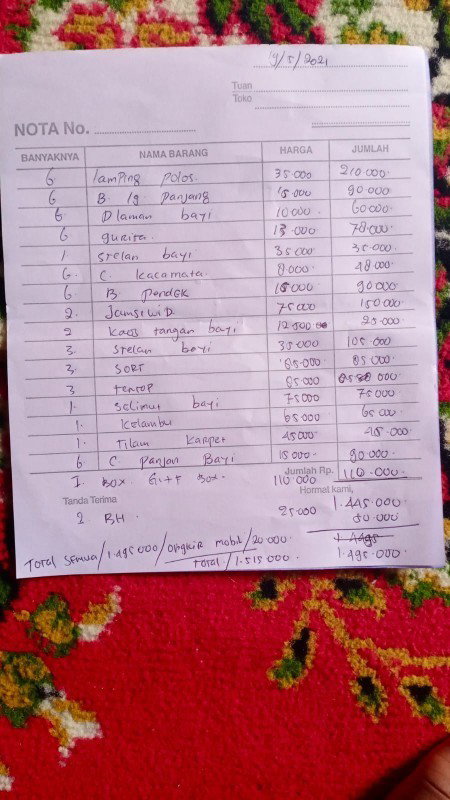 19/5/2021
Tuan
Toko
NOTA No.
BANYAKNYA NAMA BARANG HARGA JUMLAH
6 lamping polos 35.000 210.000
6 B. lg. panjang 15.000 90.000
6 Dlaman bayi 10.000 60.000
6 gurita 13.000 78.000
1. Stelan bayi 35.000 35.000
6. C. kacamata 8.000 48.000
6 B. pendek 15.000 90.000
2. Jamsiwid 75.000 150.000
2 kaos tangan bayi 12.500 25.000
3. Stelan boyi 35.000 105.000
3. SORT 85.000
3 65.000 000
1. Selimut bayi 75.000 75.000
1. Kelambu 65.000 65.000
1. Tilam Karpet 45.000 45.000
6 C Panjan Bayi 15.000 90.000
1. BOX. Gift Box. 110.000 Jumlah Rp. 110.000
Tanda Terima Hormat kami,
2 BH. 25.000 1.445.000
50.000
1.495.000
Total semua / 1.495.000 / ongkir mobil / 20.000
Total / 1.515.000